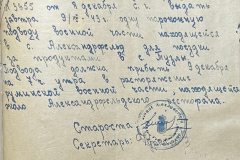 3655 от 8 декабря с. г. выдать
9/XII - 43 г. одну пароконную
подводу военной части находящейся
в с. Александровско для поездки
за продуктами в с.
Подвода должна прибыть 9 декабря
на утра в распоряжение
румынской военной части, находящейся
около Александровского ресторана.
Староста
Секретарь: